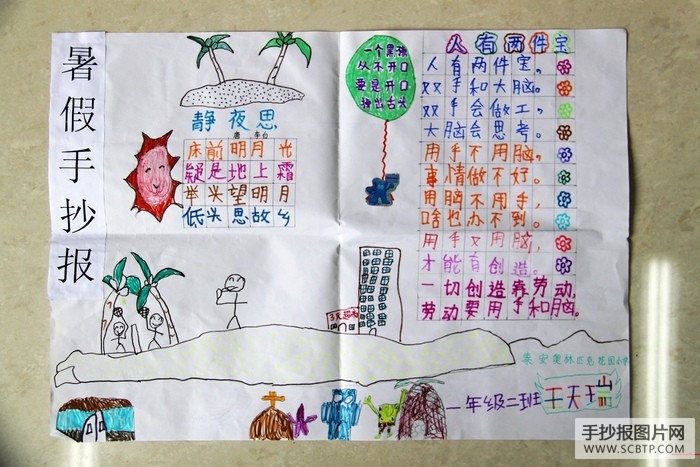 暑假手抄报
静夜思
床前明月光
疑是地上霜
举头望明月
低头思故乡
一个黑孩
从不开口
要是开口
掉出舌头
人有两件宝
人有两件宝。
双手和大脑。
双手会做工。
大脑会思考。
用手不用脑,
事情做不好。
用脑不用手,
啥也办不到。
用手又用脑,
才能有创造。
一切创造靠劳动,
劳动要用手和脑。
泰安奥林匹克花园小学
一年级二班 王天瑞
手抄报图片网
WWW.SCBTP.COM